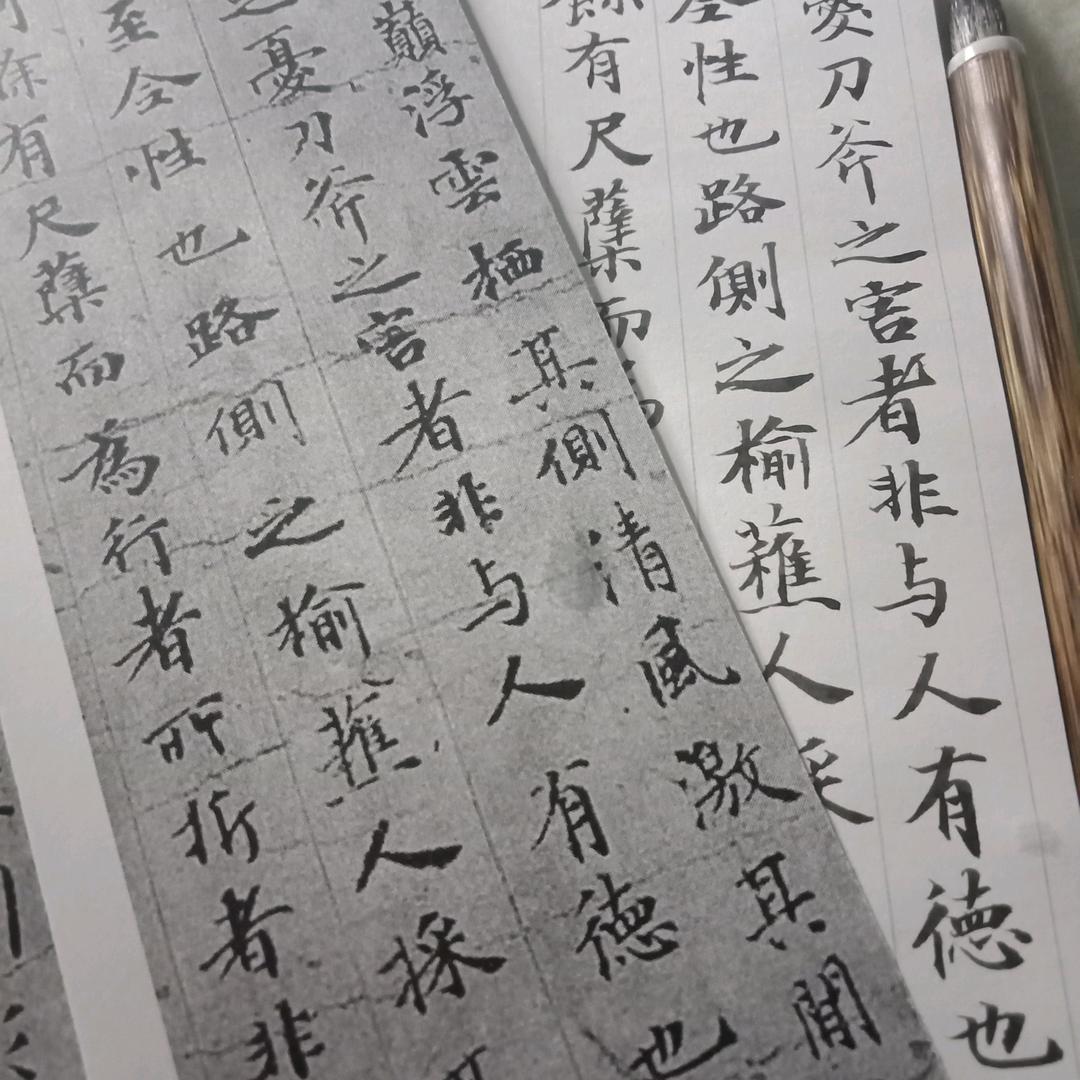 刀斧之害者非与人有德也
全性也路側之榆人採
餘有尺蘖而
巔浮雲栖其側清風激其間
之憂刀斧之害者非与人有德也
至全性也路側之榆人採
餘有尺蘖而為行者所折者非